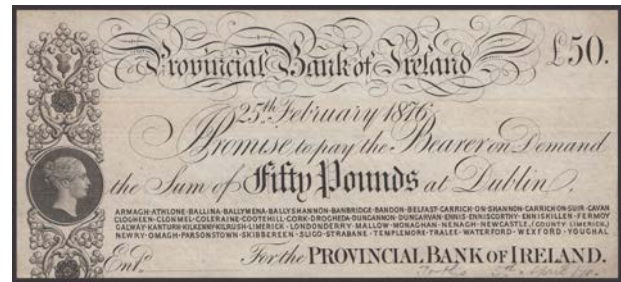 Provincial Bank of Ireland £50.
25th February 1876
Promise to pay the Bearer on Demand
the Sum of Fifty Pounds at Dublin.
ARMAGH·ATHLONE·BALLINA·BALLYMENA·BALLYSHANNON·BANBRIDGE·BANDON·BELFAST·CARRICK ON SHANNON·CARRICK ON SUIR·CAVAN
CLOGHEEN·CLONMEL·COLERAINE·COOTEHILL·CORK·DROGHEDA·DUNGANNON·DUNGARVAN·ENNIS·ENNISCORTHY·ENNISKILLEN·FERMOY
GALWAY·KANTURK·KILKENNY·KILRUSH·LIMERICK·LONDONDERRY·MALLOW·MONAGHAN·NENAGH·NEWCASTLE,(COUNTY LIMERICK,)
NEWRY·OMAGH·PARSONSTOWN·SKIBBEREEN·SLIGO·STRABANE·TEMPLEMORE·TRALEE·WATERFORD·WEXFORD·YOUGHAL
Entd. For the PROVINCIAL BANK OF IRELAND.